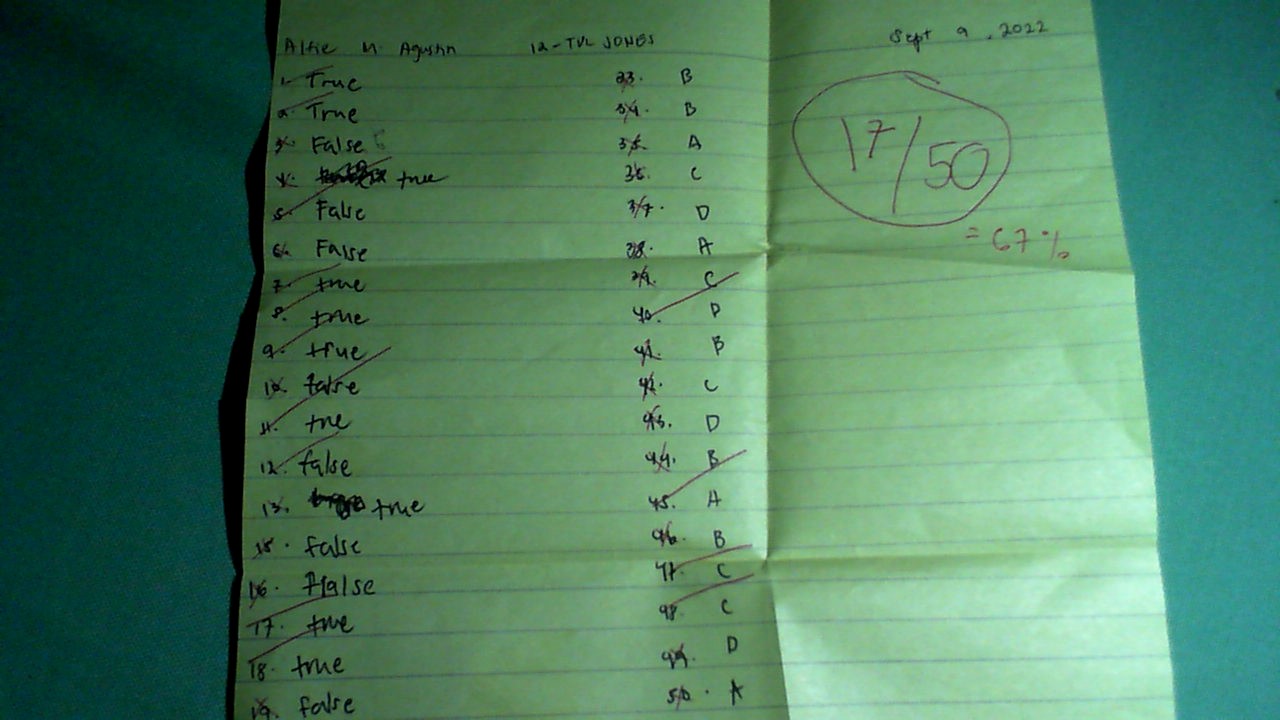 Alfie M. Agustin 12-TVL JONES Sept 9, 2022
1. True
2. True
3. False
4. true
5. False
6. False
7. true
8. true
9. true
10. false
11. true
12. false
13. true
15. false
16. flalse
17. true
18. true
19. false
33. B
34. B
35. A
36. C
37. D
38. A
39. C
40. D
41. B
42. C
43. D
44. B
45. A
46. B
47. C
48. C
49. D
50. A
17/50
= 67%